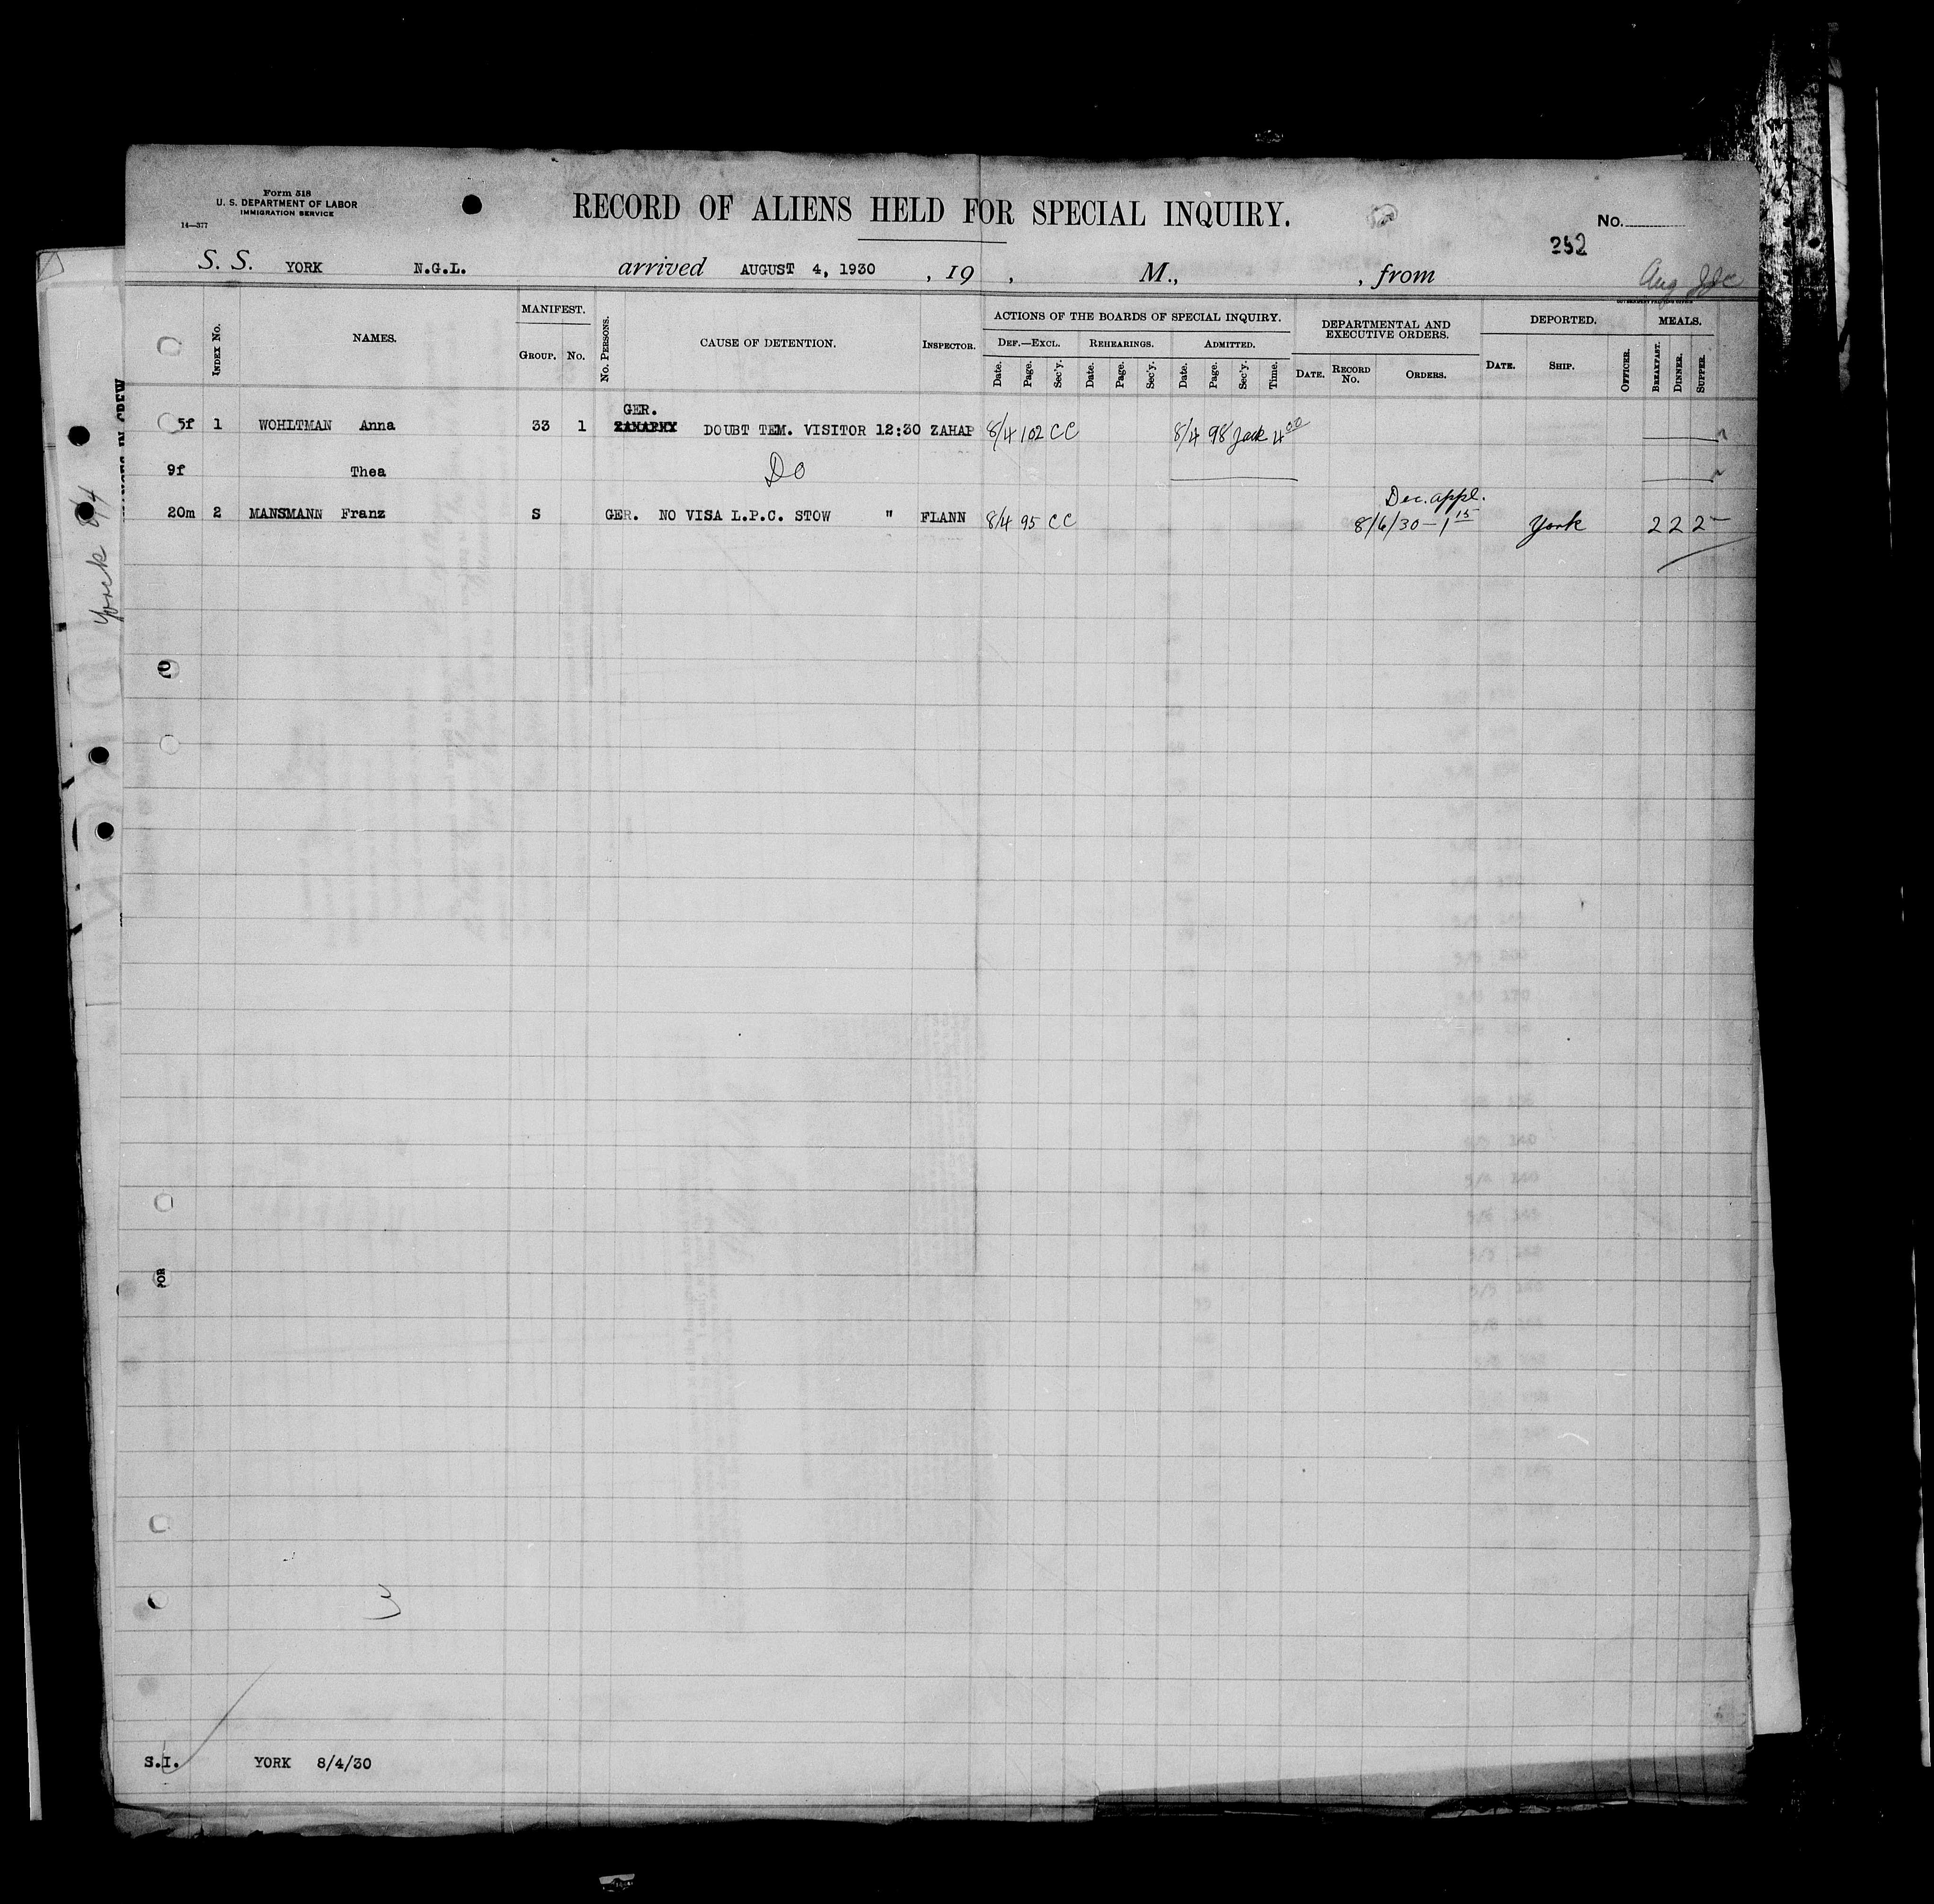 Form 518
U. S. DEPARTMENT OF LABOR
IMMIGRATION SERVICE
14—377
RECORD OF ALIENS HELD FOR SPECIAL INQUIRY.
No.
352
S. S. YORK N.G.L. arrived AUGUST 4, 1930 , 19 , M., , from
Aug
INDEX No. NAMES. MANIFEST. GROUP. No. No. PERSONS. CAUSE OF DETENTION. INSPECTOR.
ACTIONS OF THE BOARDS OF SPECIAL INQUIRY.
DEF.—EXCL. REHEARINGS. ADMITTED.
Date. Page. Sec'y. Date. Page. Sec'y. Date. Page. Sec'y. Time.
DEPARTMENTAL AND EXECUTIVE ORDERS.
DATE. RECORD No. ORDERS.
DEPORTED.
DATE. SHIP. OFFICER.
MEALS.
BREAKFAST. DINNER. SUPPER.
GER.
5f 1 WOHLTMAN Anna 33 1 DOUBT TEM. VISITOR 12:30 ZAHAR 8/4 102 CC 8/4 98 Jack 4 00
9f Thea Do
Dec. appl.
20m 2 MANSMANN Franz S GER. NO VISA L.P.C. STOW " FLANN 8/4 95 CC 8/6/30 – 1 15 York 2 2 2
York 8/4
FOR
S.I. YORK 8/4/30